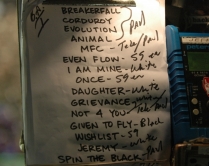 BREAKERFALL
CORDUROY
EVOLUTION Paul
ANIMAL
MFC - Tele/Paul
EVEN FLOW - 59
I AM MINE - White
ONCE - 59
DAUGHTER - White
GRIEVANCE
NOT 4 YOU Tele/Paul
GIVEN TO FLY - Black
WISHLIST - 59
JEREMY
SPIN THE BLACK Paul